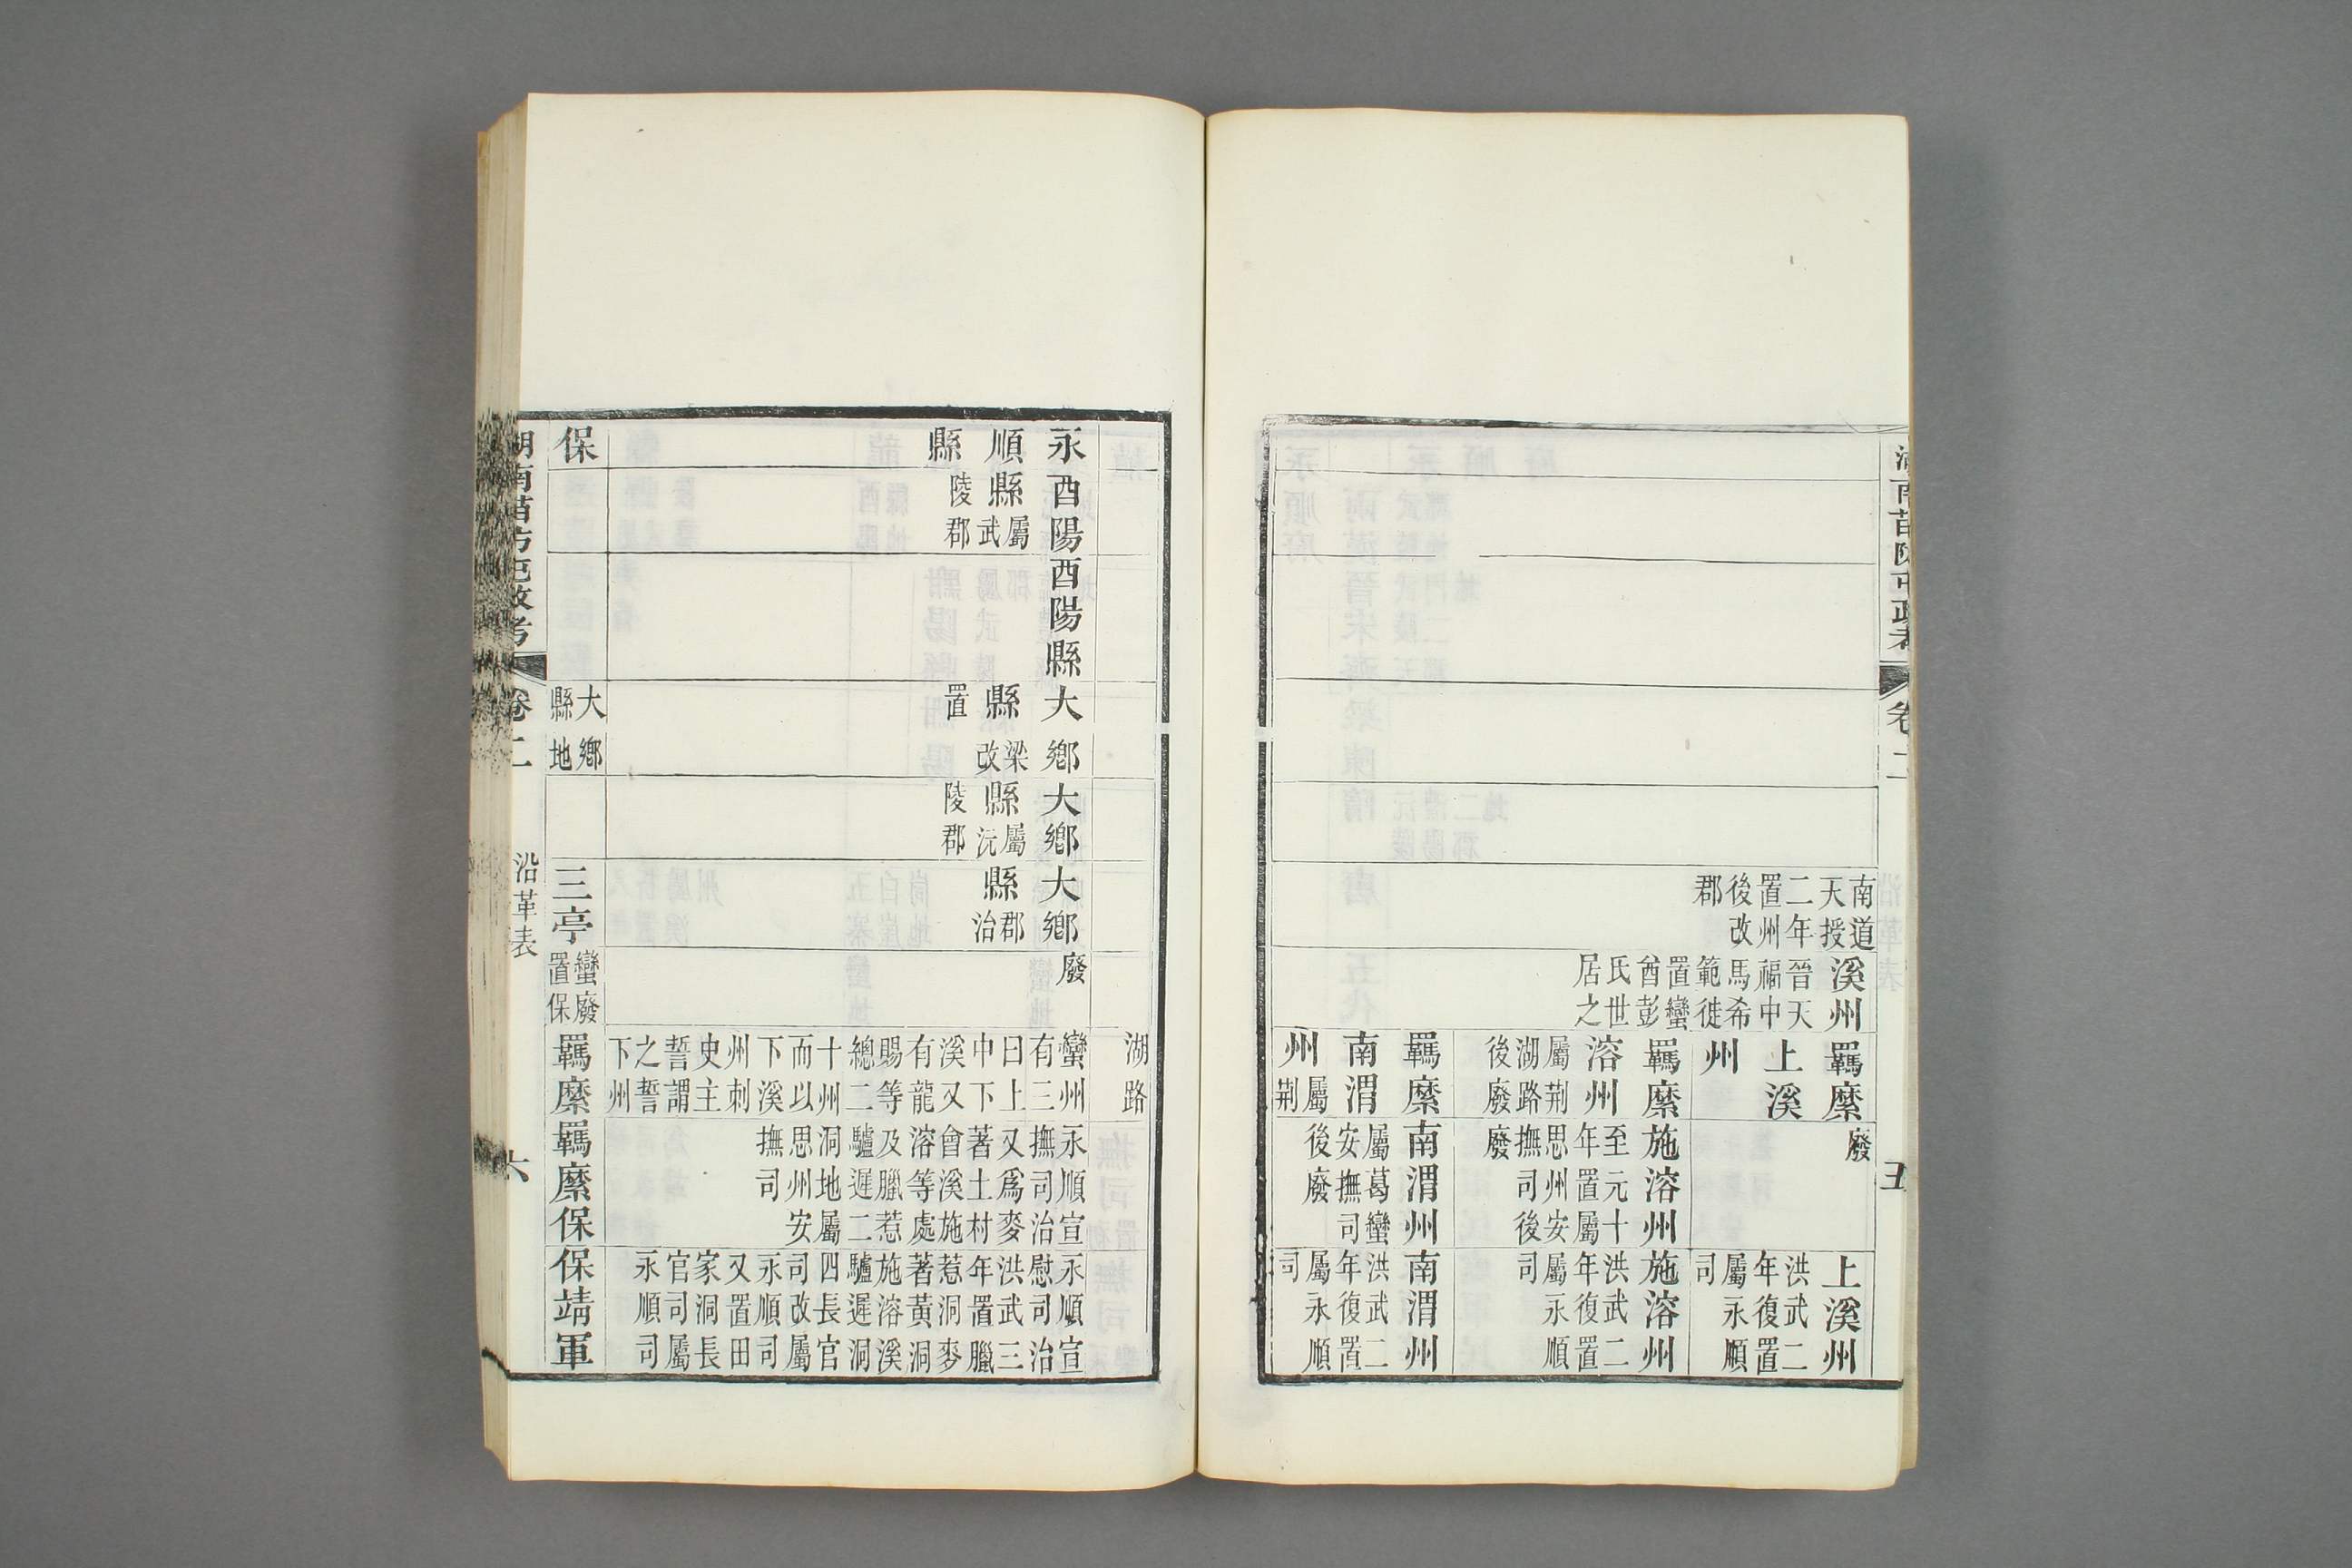 湖南苗防屯政考
卷二
五
南道
天授
二年
置州
後改
郡
溪州
晉天
福中
馬希
範徙
置蠻
酋彭
氏世
居之
羈縻
上溪
州
廢
上溪州
洪武二
年復置
屬永順
司
羈縻
溶州
屬荆
湖路
後廢
施溶州
至元十
年置屬
思州安
撫司後
廢
施溶州
洪武二
年復置
屬永順
司
羈縻
南渭
州屬荆
南渭州
屬葛蠻
安撫司
後廢
南渭州
洪武二
年復置
屬永順
司
湖路
永
順
縣
酉陽
縣屬武
陵郡
酉陽縣
大鄉
縣梁改
置
大鄉
縣屬沅
陵郡
大鄉
縣郡治
廢
蠻州
有三
曰上
中下
溪又
有龍
賜等
總二
十州
而以
下溪
州刺
史主
誓謂
之誓
下州
永順宣
撫司治
又爲麥
著土村
會溪施
溶等處
及臘惹
驢遲二
洞地屬
思州安
撫司
永順宣
慰司治
洪武三
年置臘
惹洞麥
著黄洞
施溶溪
驢遲洞
四長官
司改屬
永順司
又置田
家洞長
官司屬
永順司
保
大鄉
縣地
三亭
蠻廢
置保
羈縻
羈縻保
保靖軍
湖南苗防屯政考
卷二
沿革表
六